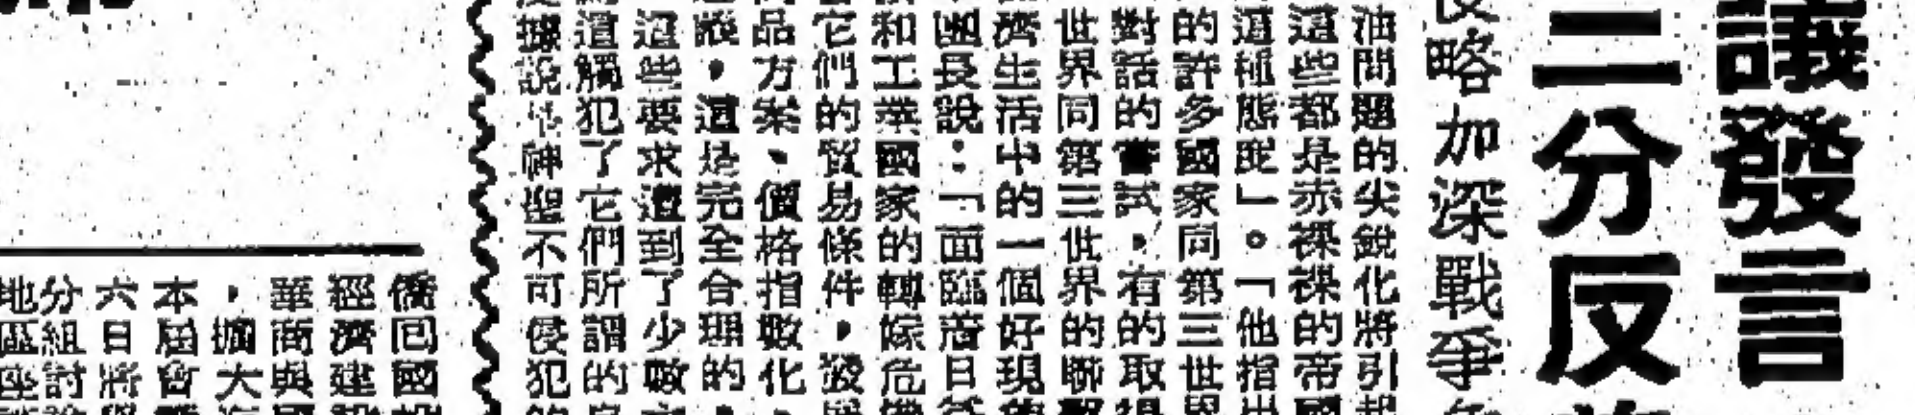 議發言
二分反
略加深戰爭
油問題的尖銳化將引起
這些都是赤裸裸的帝國
這種態度」。「他指出
的許多國家同第三世界
對話的嘗試，有的取得
世界同第三世界的聯
濟生活中的一個好現
團長說：「面臨着日益
和工業國家的轉嫁危機
它們的貿易條件，發展
品方案、價格指數化、
，這是完全合理的，
這些要求遭到了少數
這觸犯了它們所謂的
據說是神聖不可侵犯的
僑回國
經濟建設
華商與國
，擴大
本屆會
六日將與
分組討論
地區座談